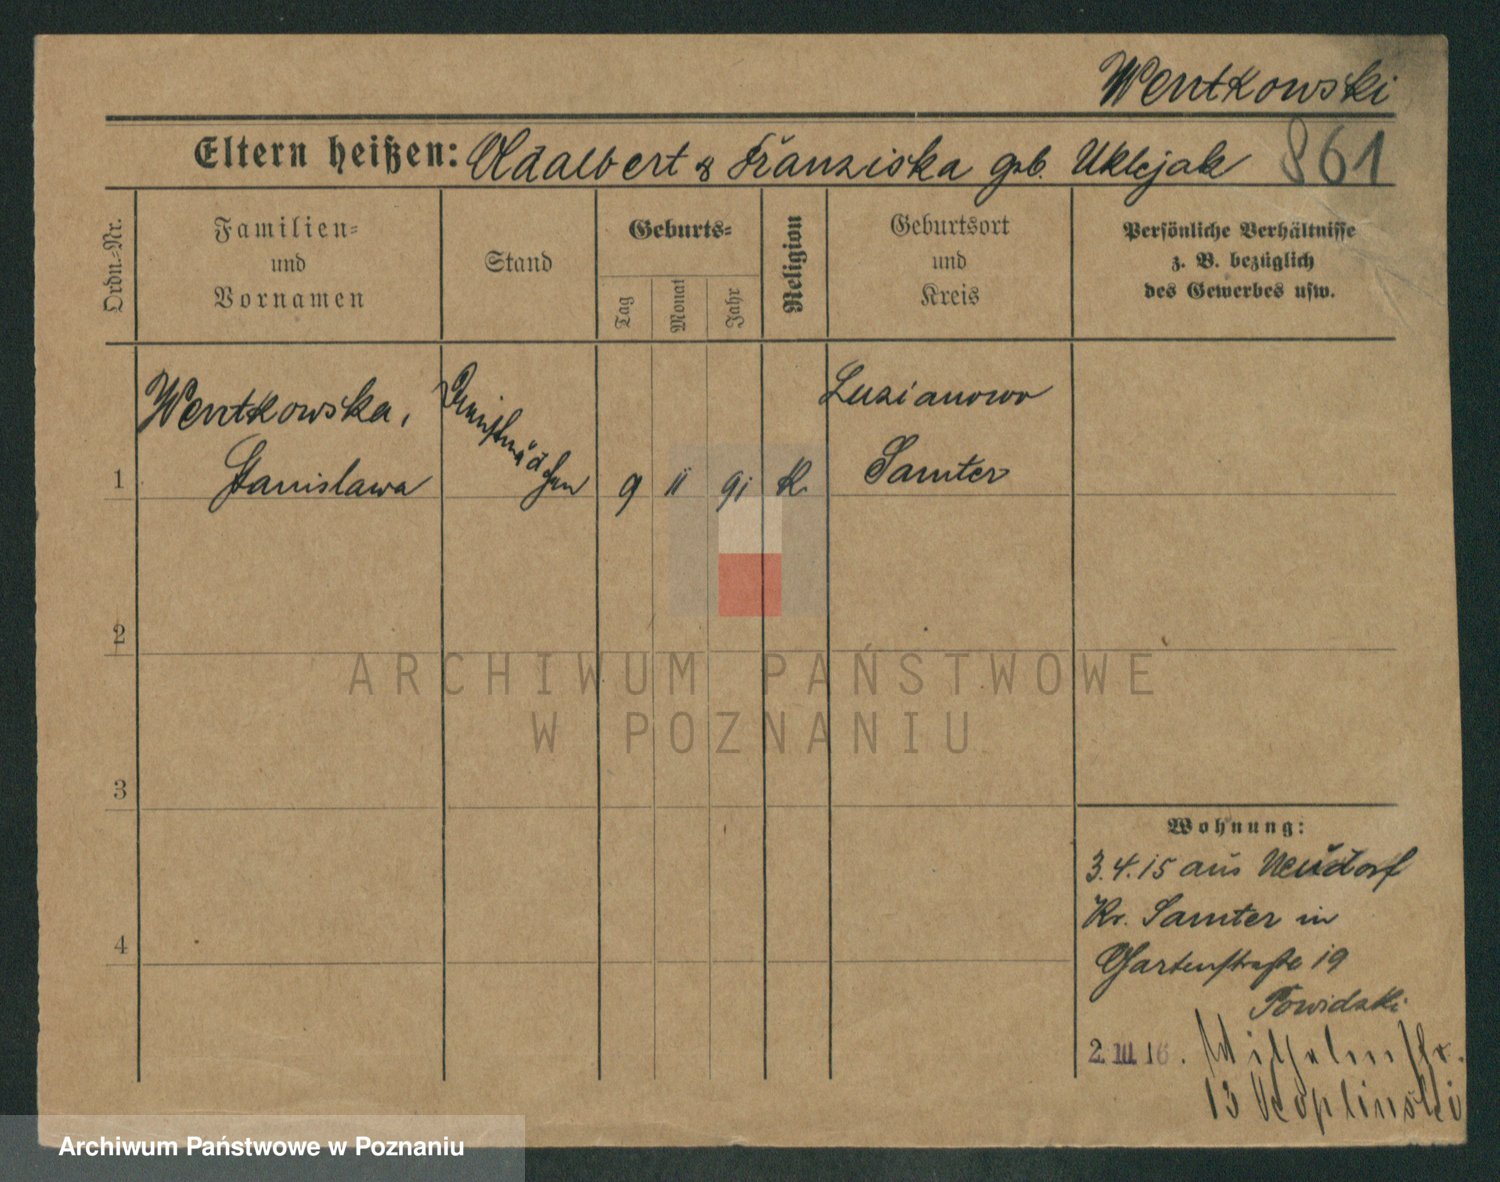 Wentkowski
Eltern heißen: Adalbert & Franziska geb. Uklejak 861
Ordn.-Nr.
Familien-
und
Vornamen
Stand
Geburts-
Tag
Monat
Jahr
Religion
Geburtsort
und
Kreis
Persönliche Verhältnisse
z. B. bezüglich
des Gewerbes usw.
Wentkowska,
Stanislawa
Dienstmädchen
1
9 11 91 K.
Luzianowo
Samter
2
3
4
Wohnung:
3.4.15 aus Neudorf
Kr. Samter in
Gartenstraße 19
Powidzki
2.III.16. Wilhelmstr.
13 Koplinski
ARCHIWUM PAŃSTWOWE
W POZNANIU
Archiwum Państwowe w Poznaniu